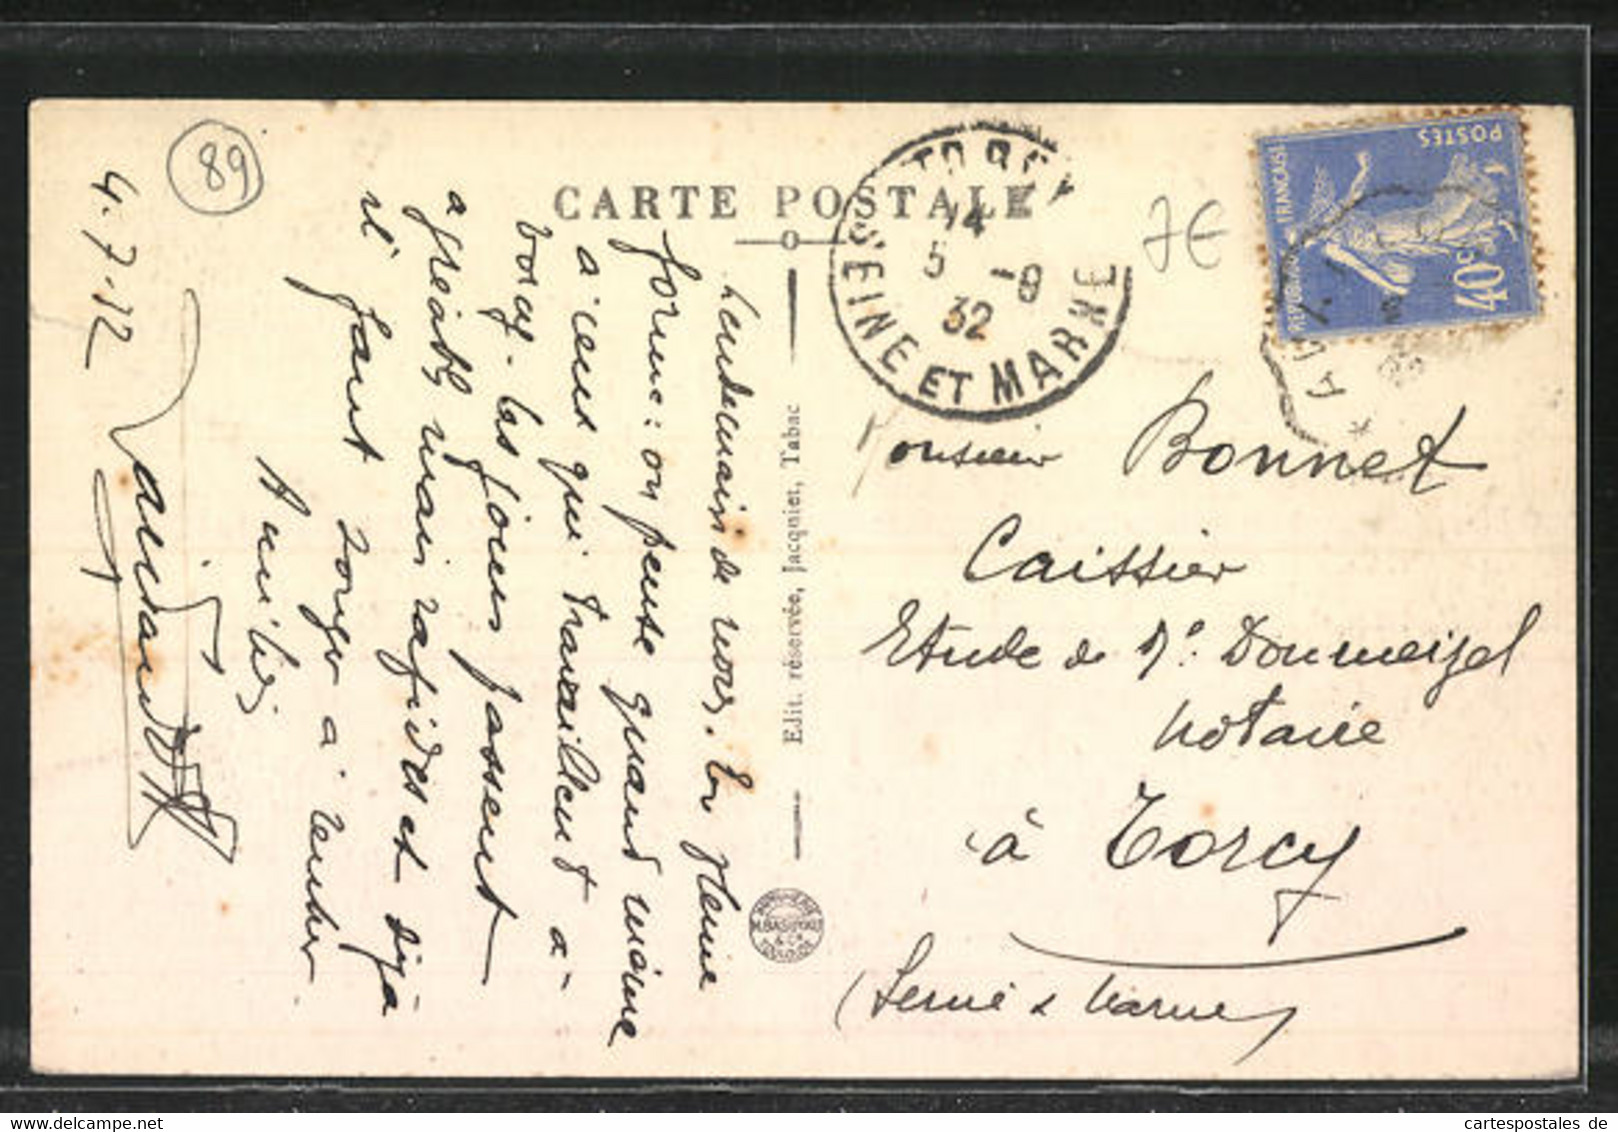 89
4.7.32
CARTE POSTALE
Lendemain de noces. En pleine
forme: on pense quand même
à ceux qui travaillent à
Torcy. Les jours passent
agréables mais rapides et déjà
il faut songer à rentrer.
Amitiés
Edit. réservée, Jacquiet, Tabac
TORCY
14
5 -8
32
SEINE ET MARNE
7€
POSTES
REPUBLIQUE FRANÇAISE
40c
Monsieur Bonnet
Caissier
Etude de Me Donmeizel
Notaire
à Torcy
(Seine & Marne)
cartespostales de